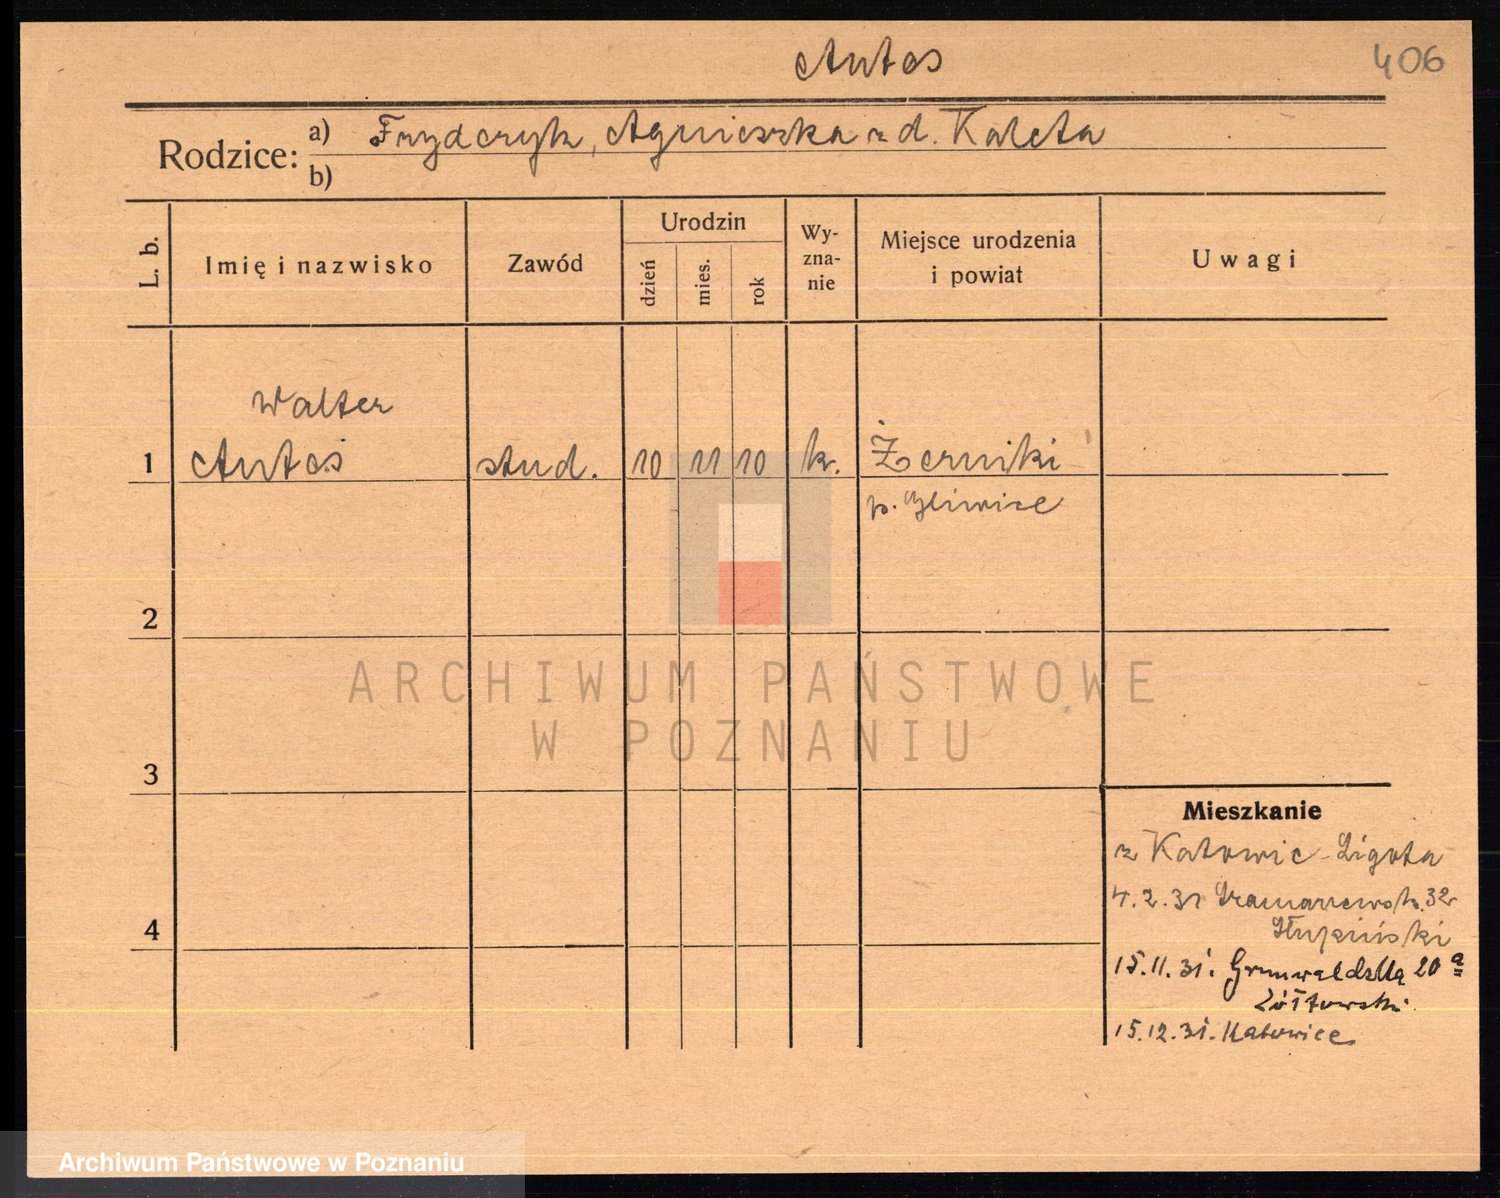 Antos
406
Rodzice:
a) Fryderyk, Agnieszka z d. Kaleta
b)
L. b.
Imię i nazwisko
Zawód
Urodzin
dzień
mies.
rok
Wy-
zna-
nie
Miejsce urodzenia
i powiat
Uwagi
Walter
1 Antos stud. 10 11 10 k. Żerniki
p. Gliwice
2
3
4
ARCHIWUM PAŃSTWOWE
W POZNANIU
Mieszkanie
z Katowic-Ligota
4.2.31 32
15.11.31. Grunwaldzka 20a
Żółtowski
15.12.31. Katowice
Archiwum Państwowe w Poznaniu